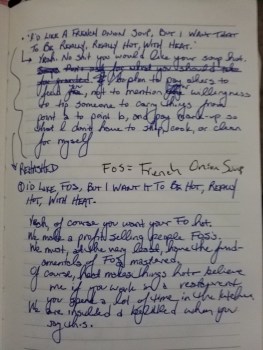 - "I'D LIKE A FRENCH ONION SOUP, BUT I WANT THAT
TO BE REALLY, REALLY HOT, WITH HEAT."
Yeah. No shit you would like your soup hot.
to pay others to
feed not to mention willingness
to tip someone to carry things from
point a to point b, and pay so
that I don't have to shop, cook, or clean
for myself
REHASHED FOS = French Onion Soup
I'D LIKE, FOS, BUT I WANT IT TO BE HOT, REALLY
HOT, WITH HEAT.
Yeah, of course you want your FO hot.
We make a profit selling people FOSs.
We must, at the very least, have the fund-
amentals of FOS mastered.
Of course, heat makes things hot - believe
me if you work in a restaurant
you spend a lot of time in the kitchen.
We are insulted & belittled when you
say this.